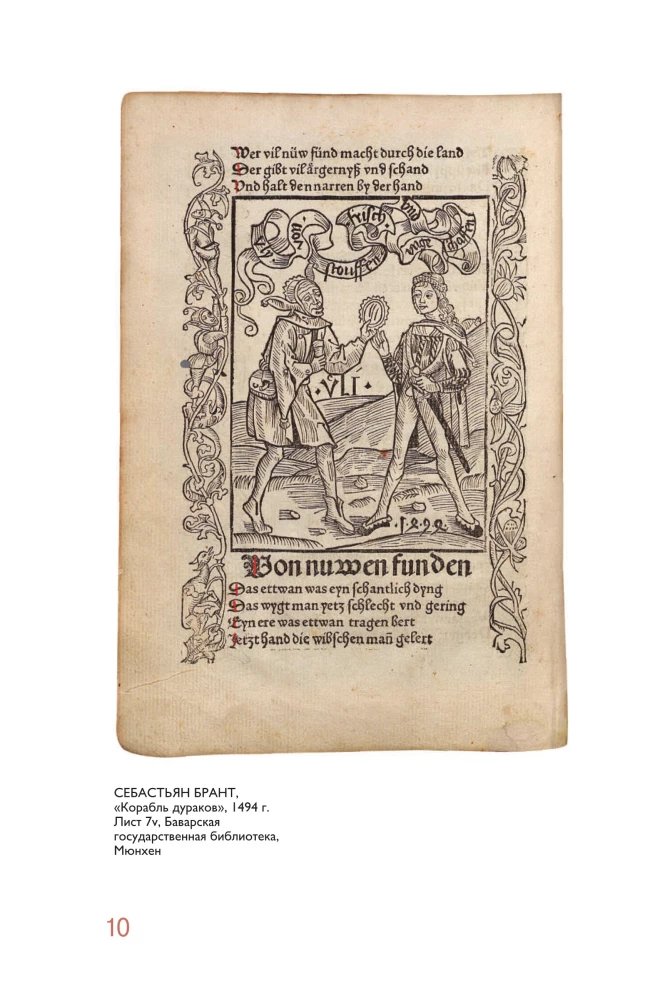 Wer vil nüw fünd macht durch die land
Der gibt vil årgernyß vnd schand
Vnd halt den narren by der hand
vly
von
stouffen
frisch
vnd
vnge
schaffen
.VLI.
.1494.
Von nuwen funden
Das ettwan was eyn schantlich dyng
Das wygt man yetz schlecht vnd gering
Eyn ere was ettwan tragen bert
Jetzt hand die wibschen mañ gelert
СЕБАСТЬЯН БРАНТ,
«Корабль дураков», 1494 г.
Лист 7v, Баварская
государственная библиотека,
Мюнхен
10